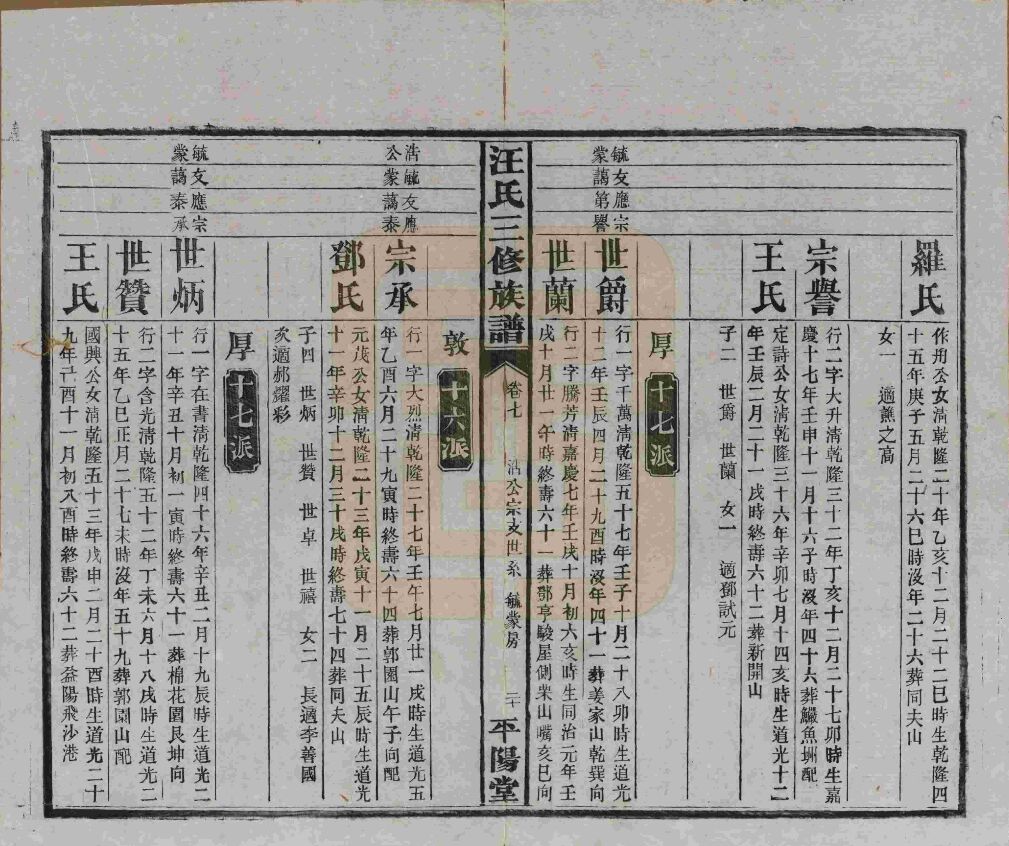 羅氏
作舟公女清乾隆二十年乙亥十二月二十二巳時生乾隆四
十五年庚子五月二十六巳時沒年二十六葬同夫山
女一　適蕉之高
宗譽
行二字大升清乾隆三十二年丁亥十二月二十七卯時生嘉
慶十七年壬申十一月十六子時沒年四十六葬鱖魚洲配
王氏
定詩公女清乾隆三十六年辛卯七月十四亥時生道光十二
年壬辰二月二十一戌時終壽六十二葬新開山
子二　世爵　世蘭　女一　適鄧試元
厚　十七派
毓友應宗
蒙藹第譽
世爵
行一字千萬清乾隆五十七年壬子十月二十八卯時生道光
十二年壬辰四月二十九酉時沒年四十一葬姜家山乾巽向
世蘭
行二字騰芳清嘉慶七年壬戌十月初六亥時生同治元年壬
戌十月廿一午時終壽六十一葬鄧亨駿屋側柴山嘴亥巳向
汪氏三修族譜
卷七
浩公宗支世系　毓蒙房
二十
平陽堂
敦　十六派
浩毓友應
公蒙藹泰
宗承
行一字大烈清乾隆二十七年壬午七月廿一戌時生道光五
年乙酉六月二十九寅時終壽六十四葬郭園山午子向配
鄧氏
元茂公女清乾隆二十三年戊寅十一月二十五辰時生道光
十一年辛卯十二月三十戌時終壽七十四葬同夫山
子四　世炳　世贊　世卓　世禧　女二　長適李善國
次適郝耀彩
厚　十七派
毓友應宗
蒙藹泰承
世炳
行一字在書清乾隆四十六年辛丑二月十九辰時生道光二
十一年辛丑十月初一寅時終壽六十一葬棉花園艮坤向
世贊
行二字含光清乾隆五十二年丁未六月十八戌時生道光二
十五年乙巳正月二十七未時沒年五十九葬郭園山配
王氏
國興公女清乾隆五十三年戊申二月二十酉時生道光二十
九年己酉十一月初八酉時終壽六十二葬益陽飛沙港